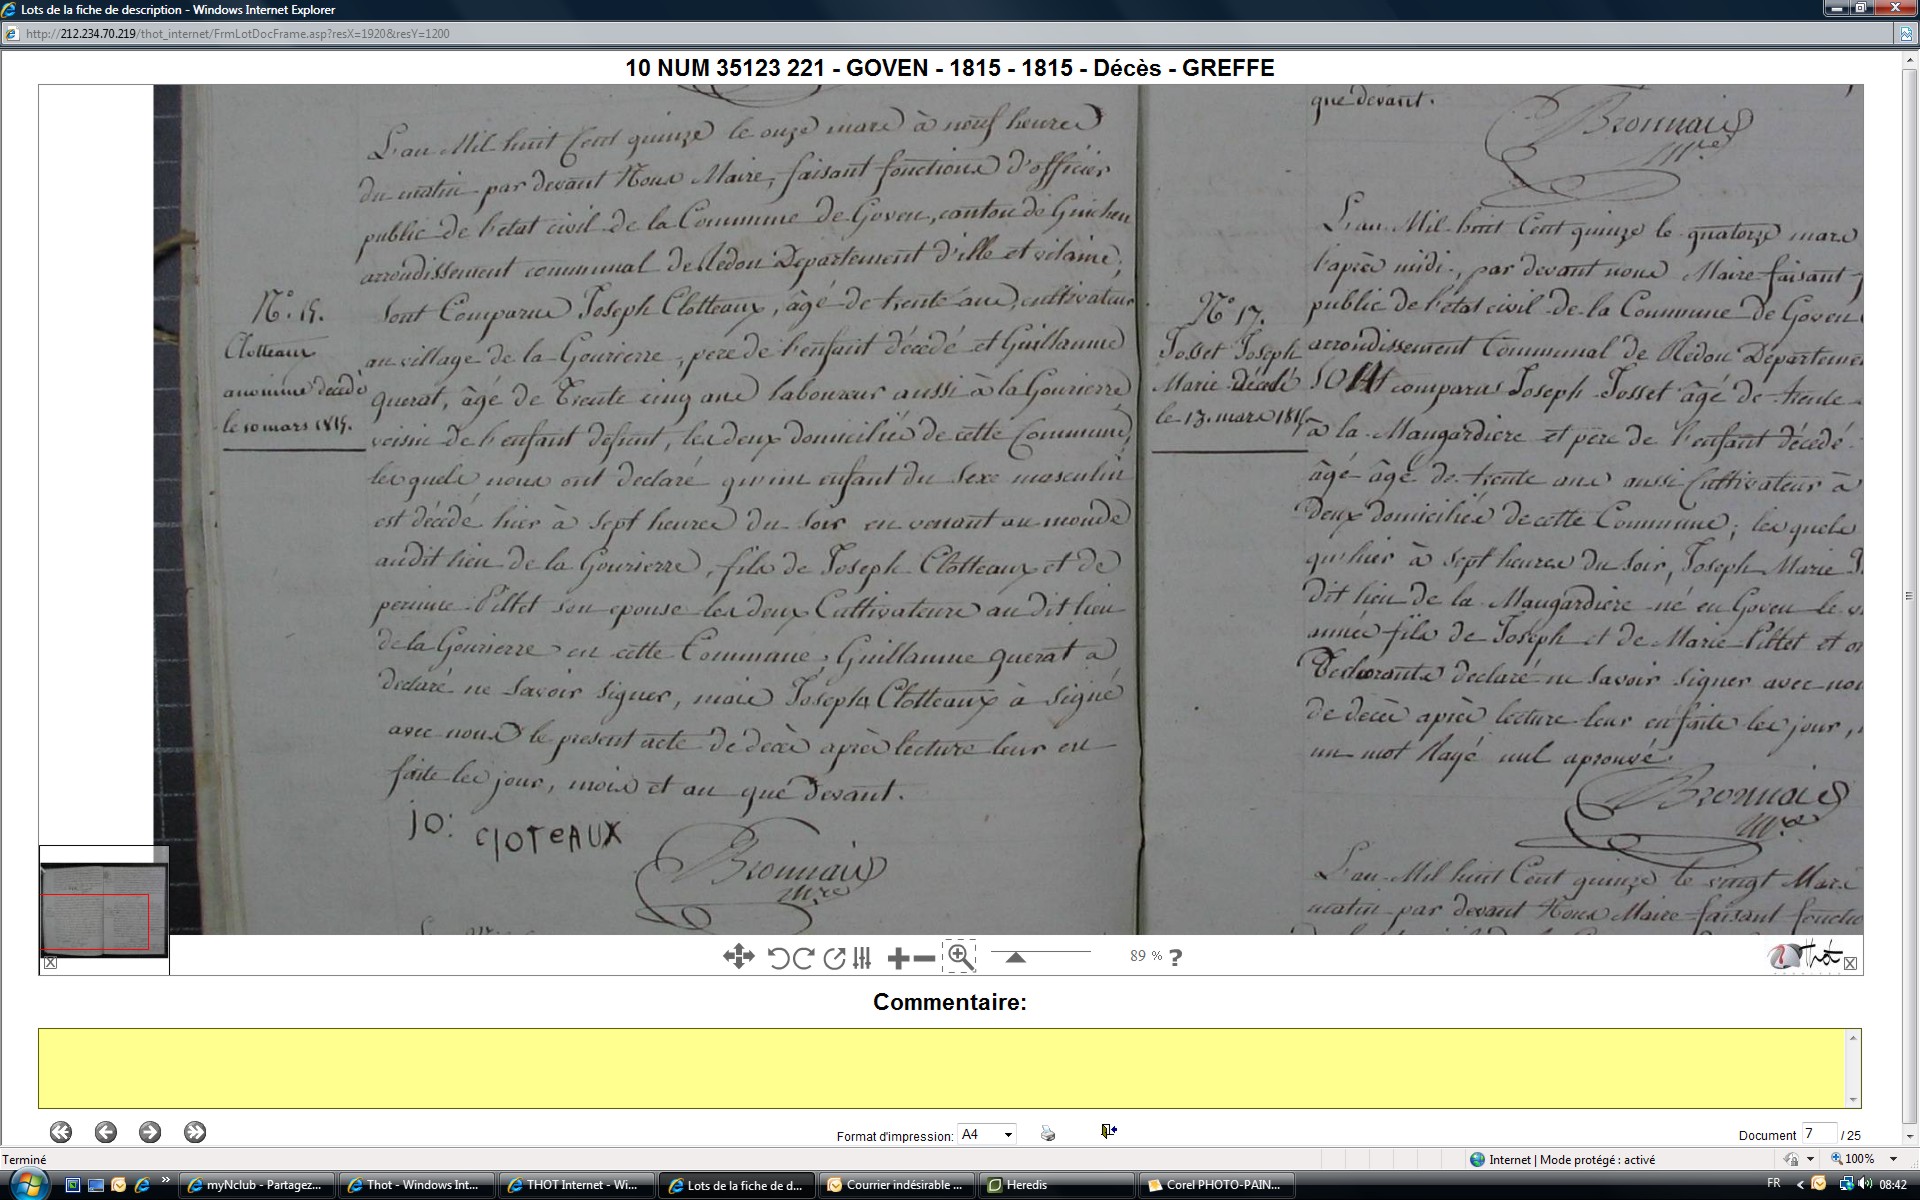 Lots de la fiche de description - Windows Internet Explorer
http://212.234.70.219/thot_internet/FrmLotDocFrame.asp?resX=1920&resY=1200
10 NUM 35123 221 - GOVEN - 1815 - 1815 - Décès - GREFFE
L'an Mil huit Cent quinze le onze mars à neuf heures
du matin par devant Nous Maire, faisant fonctions d'officier
public de l'etat civil de la Commune de Goven, canton de Guichen
arrondissement communal de Redon Departement d'ille et vilaine,
N°. 15.
Clotteaux
anonime décédé
le 10 mars 1815.
sont Comparus Joseph Clotteaux, âgé de trente ans, cultivateur
au village de la Gourierre, pere de l'enfant décédé et Guillaume
querat, âgé de Trente cinq ans laboureur aussi à la Gourierre
voisin de l'enfant defunt, les deux domiciliés de cette Commune,
les quels nous ont declaré qu'un enfant du sexe masculin
est décédé hier à sept heures du soir en venant au monde
audit lieu de la Gourierre, fils de Joseph Clotteaux et de
perinne Pillet son epouse les deux Cultivateurs au dit lieu
de la Gourierre en cette Commune, Guillaume querat a
declaré ne savoir signer, mais Joseph Clotteaux à signé
avec nous le present acte de decès après lecture leur en
faite les jour, mois et an que devant.
jo: cloteAUX
Bronnais
Mre
que devant.
Bronnais
Mre
L'an Mil huit Cent quinze le quatorze mars
l'après midi, par devant nous Maire faisant
public de l'etat civil de la Commune de Goven
N° 17.
Josset Joseph
Marie décédé
le 13. mars 1815
arrondissement Communal de Redon Departeme
SONt comparus Joseph Josset âgé de trente
à la Maugardiere et père de l'enfant décédé
âgé âgé de trente ans aussi Cultivateur à
deux domiciliés de cette Commune, les quels
qu'hier à sept heures du soir, Joseph Marie J
dit lieu de la Maugardiere né en Goven le
année fils de Joseph et de Marie Pillet et
declaré ne savoir signer avec nou
de decès après lecture leur en faite les jour,
un mot Rayé nul aprouvé.
Bronnais
Mre
L'an Mil huit Cent quinze le vingt Mars
matin par devant Nous Maire faisant fonctio
89 % ?
Thot
Commentaire:
Format d'impression: A4
Document 7 / 25
Terminé
Internet | Mode protégé : activé
100%
myNclub - Partagez...
Thot - Windows Int...
THOT Internet - Wi...
Lots de la fiche de d...
Courrier indésirable ...
Heredis
Corel PHOTO-PAIN...
FR
08:42